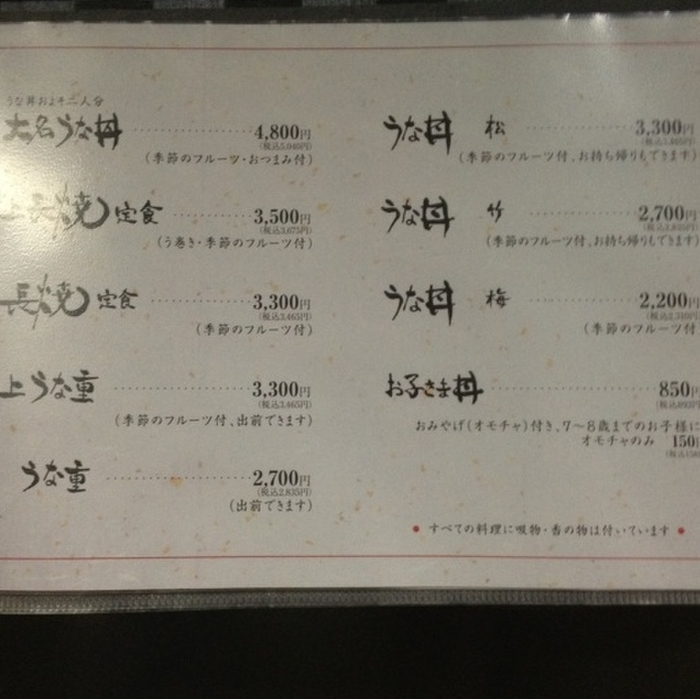 うな丼およそ二人分
大名うな丼 4,800円
(税込5,040円)
(季節のフルーツ・おつまみ付)
上長焼定食 3,500円
(税込3,675円)
(う巻き・季節のフルーツ付)
長焼定食 3,300円
(税込3,465円)
(季節のフルーツ付)
上うな重 3,300円
(税込3,465円)
(季節のフルーツ付、出前できます)
うな重 2,700円
(税込2,835円)
(出前できます)
うな丼 松 3,300円
(税込3,465円)
(季節のフルーツ付、お持ち帰りもできます)
うな丼 竹 2,700円
(税込2,835円)
(季節のフルーツ付、お持ち帰りもできます)
うな丼 梅 2,200円
(税込2,310円)
(季節のフルーツ付
お子さま丼 850円
おみやげ(オモチャ)付き、7〜8歳までのお子様に
オモチャのみ 150円
● すべての料理に吸物・香の物は付いています ●